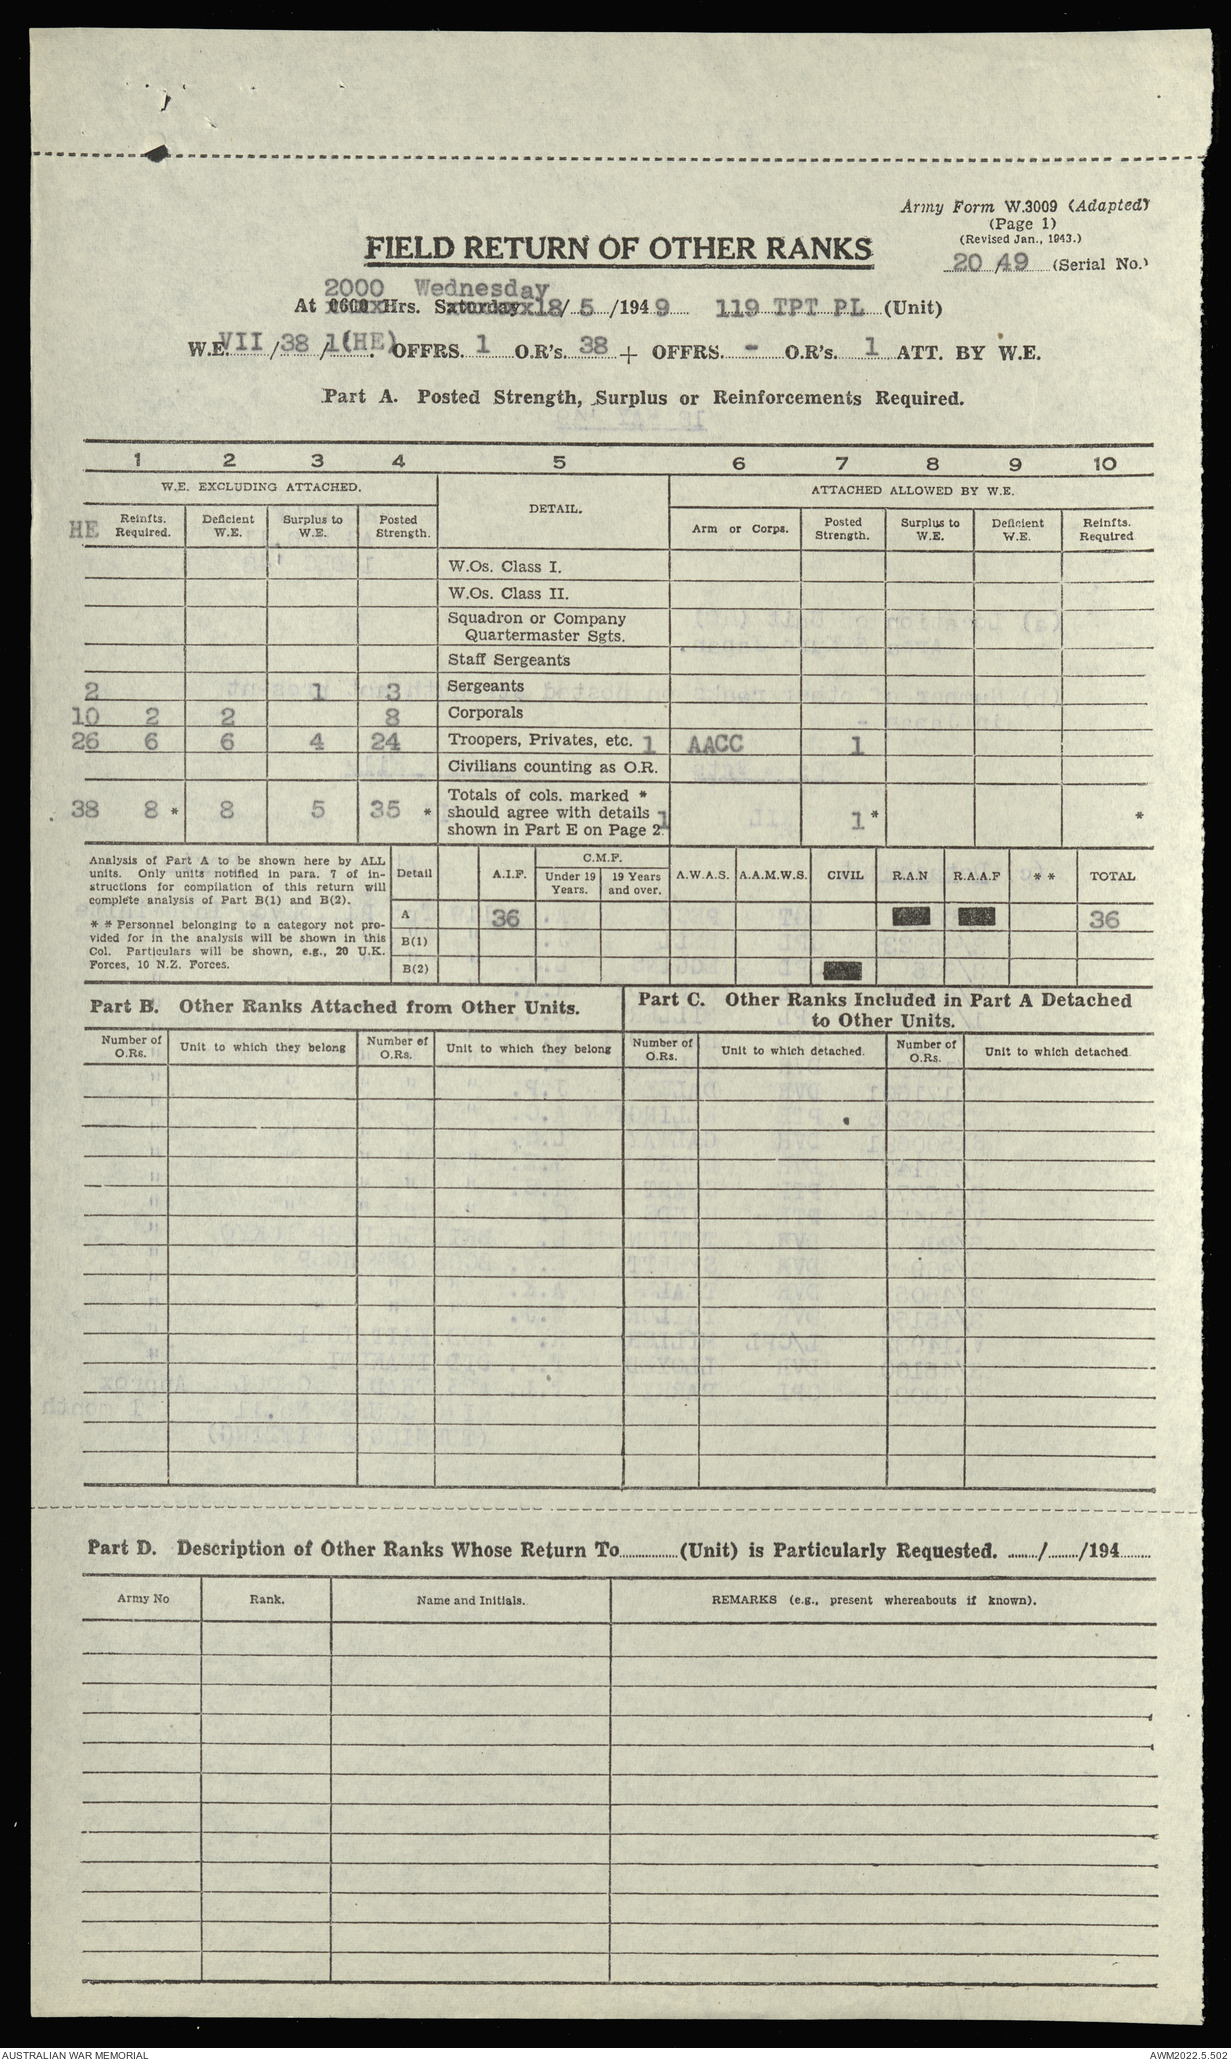 Army Form W.3009 (Adapted)
(Page 1)
(Revised Jan., 1943.)
20/49 (Serial No.)
FIELD RETURN OF OTHER RANKS
2000 Wednesday
At 0600 Hrs. Saturday 18/5/1949 119 TPT PL (Unit)
W.E. VII/38/1(HE) OFFRS. 1 O.R's. 38 + OFFRS. - O.R's. 1 ATT. BY W.E.
Part A. Posted Strength, Surplus or Reinforcements Required.
1 2 3 4 5 6 7 8 9 10
W.E. EXCLUDING ATTACHED. DETAIL. ATTACHED ALLOWED BY W.E.
HE Reinfts. Required. Deficient W.E. Surplus to W.E. Posted Strength. Arm or Corps. Posted Strength. Surplus to W.E. Deficient W.E. Reinfts. Required
W.Os. Class I.
W.Os. Class II.
Squadron or Company
Quartermaster Sgts.
Staff Sergeants
2 1 3 Sergeants
10 2 2 8 Corporals
26 6 6 4 24 Troopers, Privates, etc. 1 AACC 1
Civilians counting as O.R.
38 8 * 8 5 35 * Totals of cols. marked * should agree with details shown in Part E on Page 2. 1 1 * *
Analysis of Part A to be shown here by ALL
units. Only units notified in para. 7 of in-
structions for compilation of this return will
complete analysis of Part B(1) and B(2).
* * Personnel belonging to a category not pro-
vided for in the analysis will be shown in this
Col. Particulars will be shown, e.g., 20 U.K.
Forces, 10 N.Z. Forces.
Detail A.I.F. C.M.F. Under 19 Years. 19 Years and over. A.W.A.S. A.A.M.W.S. CIVIL R.A.N R.A.A.F * * TOTAL
A 36 36
B(1)
B(2)
Part B. Other Ranks Attached from Other Units.
Part C. Other Ranks Included in Part A Detached
to Other Units.
Number of O.Rs. Unit to which they belong Number of O.Rs. Unit to which they belong Number of O.Rs. Unit to which detached. Number of O.Rs. Unit to which detached.
Part D. Description of Other Ranks Whose Return To (Unit) is Particularly Requested. / /194
Army No Rank. Name and Initials. REMARKS (e.g., present whereabouts if known).
AUSTRALIAN WAR MEMORIAL AWM2022.5.502